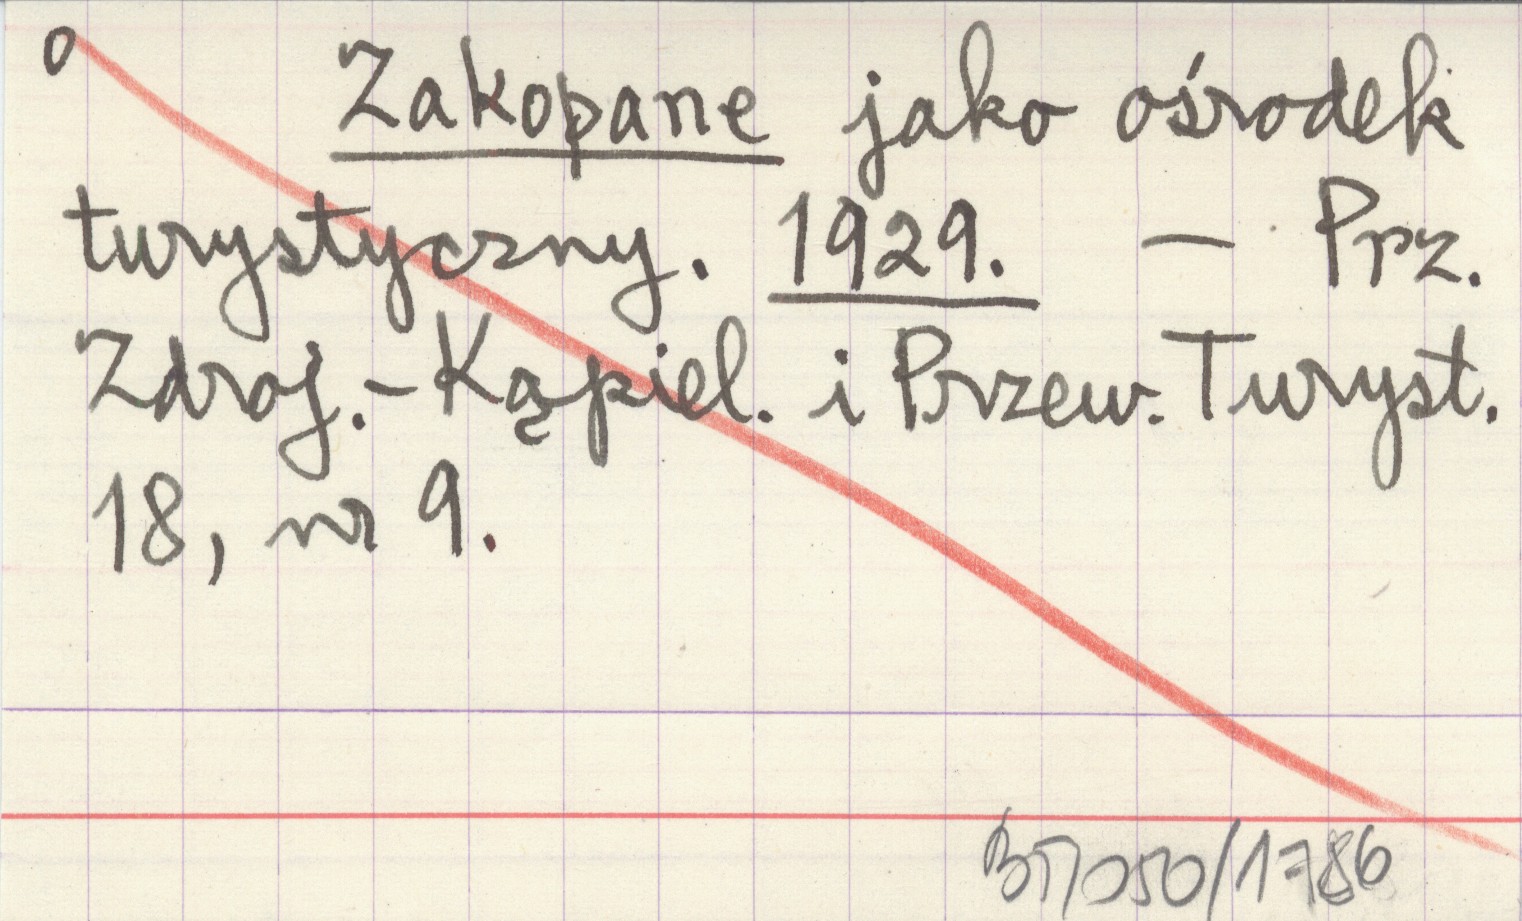 o Zakopane jako ośrodek
turystyczny. 1929. — Prz.
Zdroj.-Kąpiel. i Przew. Turyst.
18, nr 9.